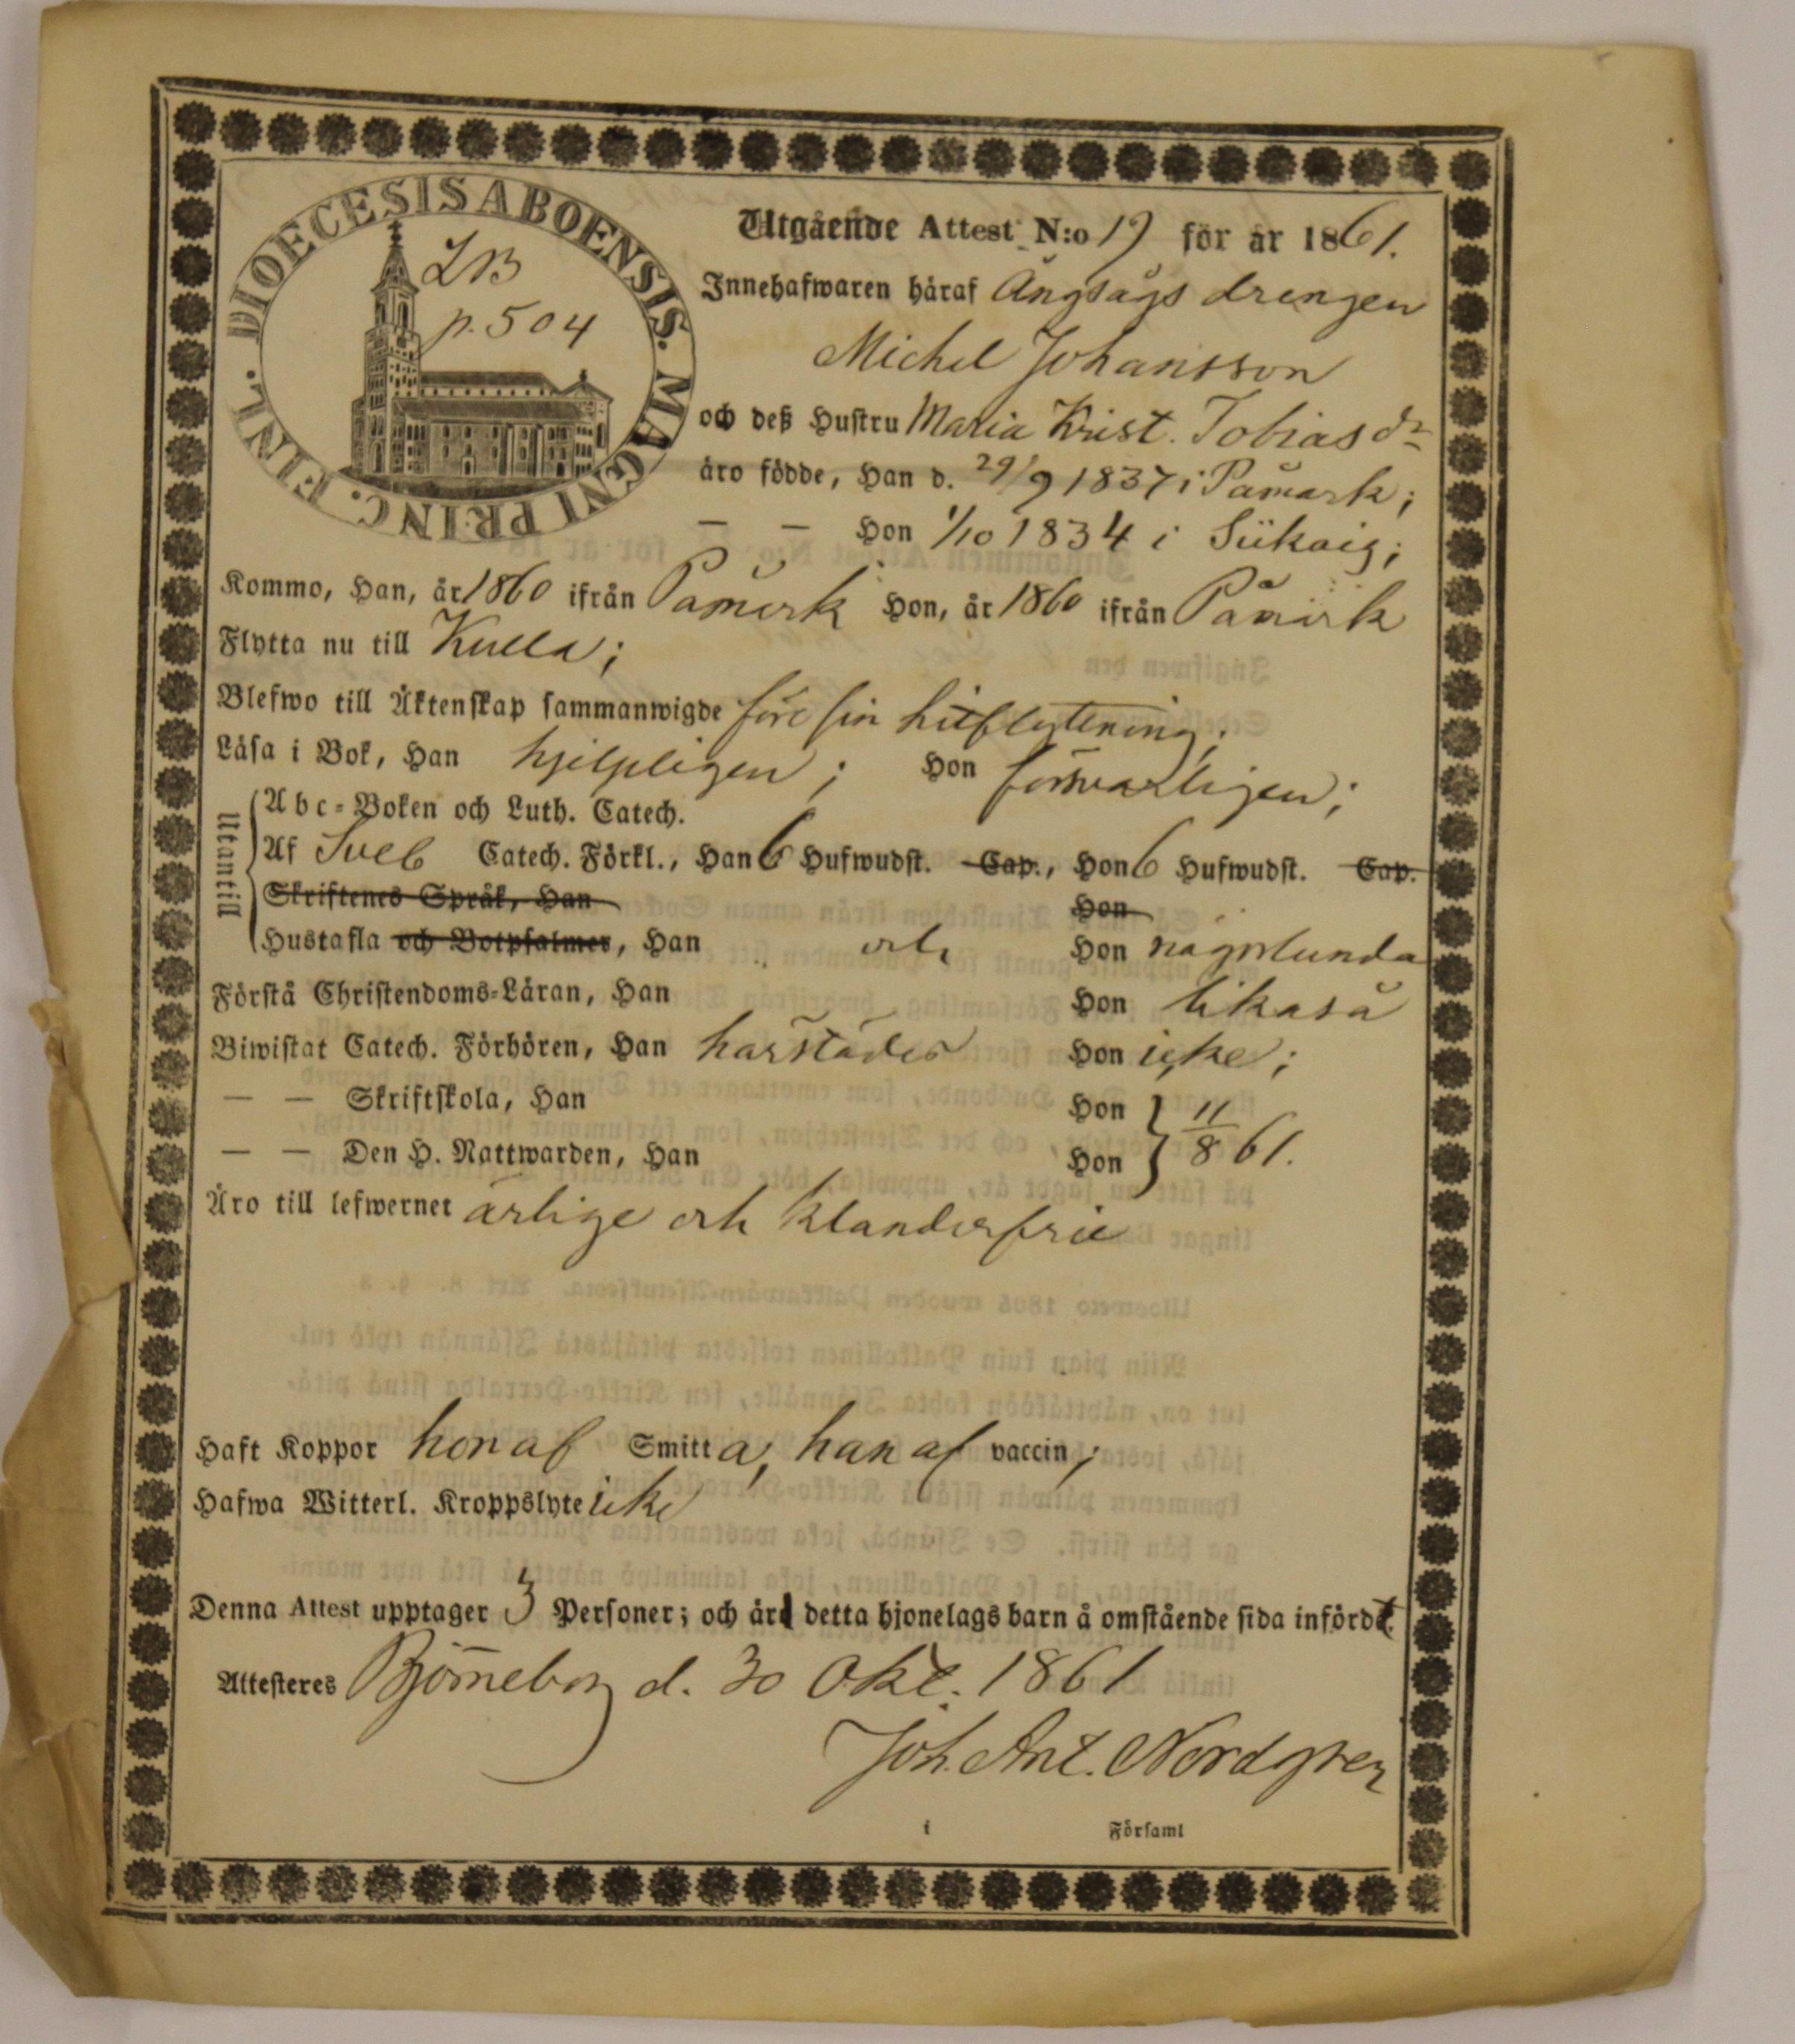 DIOECESIS ABOENSIS. MAGNI PRINC. FINL.
LB
p. 504
Utgående Attest N:o 19 för år 1861.
Innehafwaren häraf Ångsågs drengen
Michel Johansson
och deß Hustru Maria Krist. Tobiasdr
äro födde, Han d. 29/9 1837 i Påmark;
— — Hon 1/10 1834 i Siikais;
Kommo, Han, år 1860 ifrån Påmark Hon, år 1860 ifrån Påmark
Flytta nu till Kulla;
Blefwo till Äktenskap sammanwigde före sin hitflyttning;
Läsa i Bok, Han hjelpligen; Hon försvarligen;
Utantill
Abc-Boken och Luth. Catech.
Af Sveb Catech. Förkl., Han 6 Hufwudst. Cap., Hon 6 Hufwudst. Cap.
Skriftenes Språk, Han Hon
Hustafla och Botpsalmer, Han och Hon någorlunda
Förstå Christendoms-Läran, Han Hon likaså
Biwistat Catech. Förhören, Han härstädes Hon icke;
— — Skriftskola, Han Hon
— — Den H. Nattwarden, Han Hon } 11/8 61.
Äro till lefwernet ärlige och klanderfrie
Haft Koppor hon af Smitta, han af vaccin;
Hafwa Witterl. Kroppslyte icke
Denna Attest upptager 3 Personer; och äro detta hjonelags barn å omstående sida infördt.
Attesteras Björneborg d. 30 Okt. 1861
Joh. Ant. Nordgren
i Församl